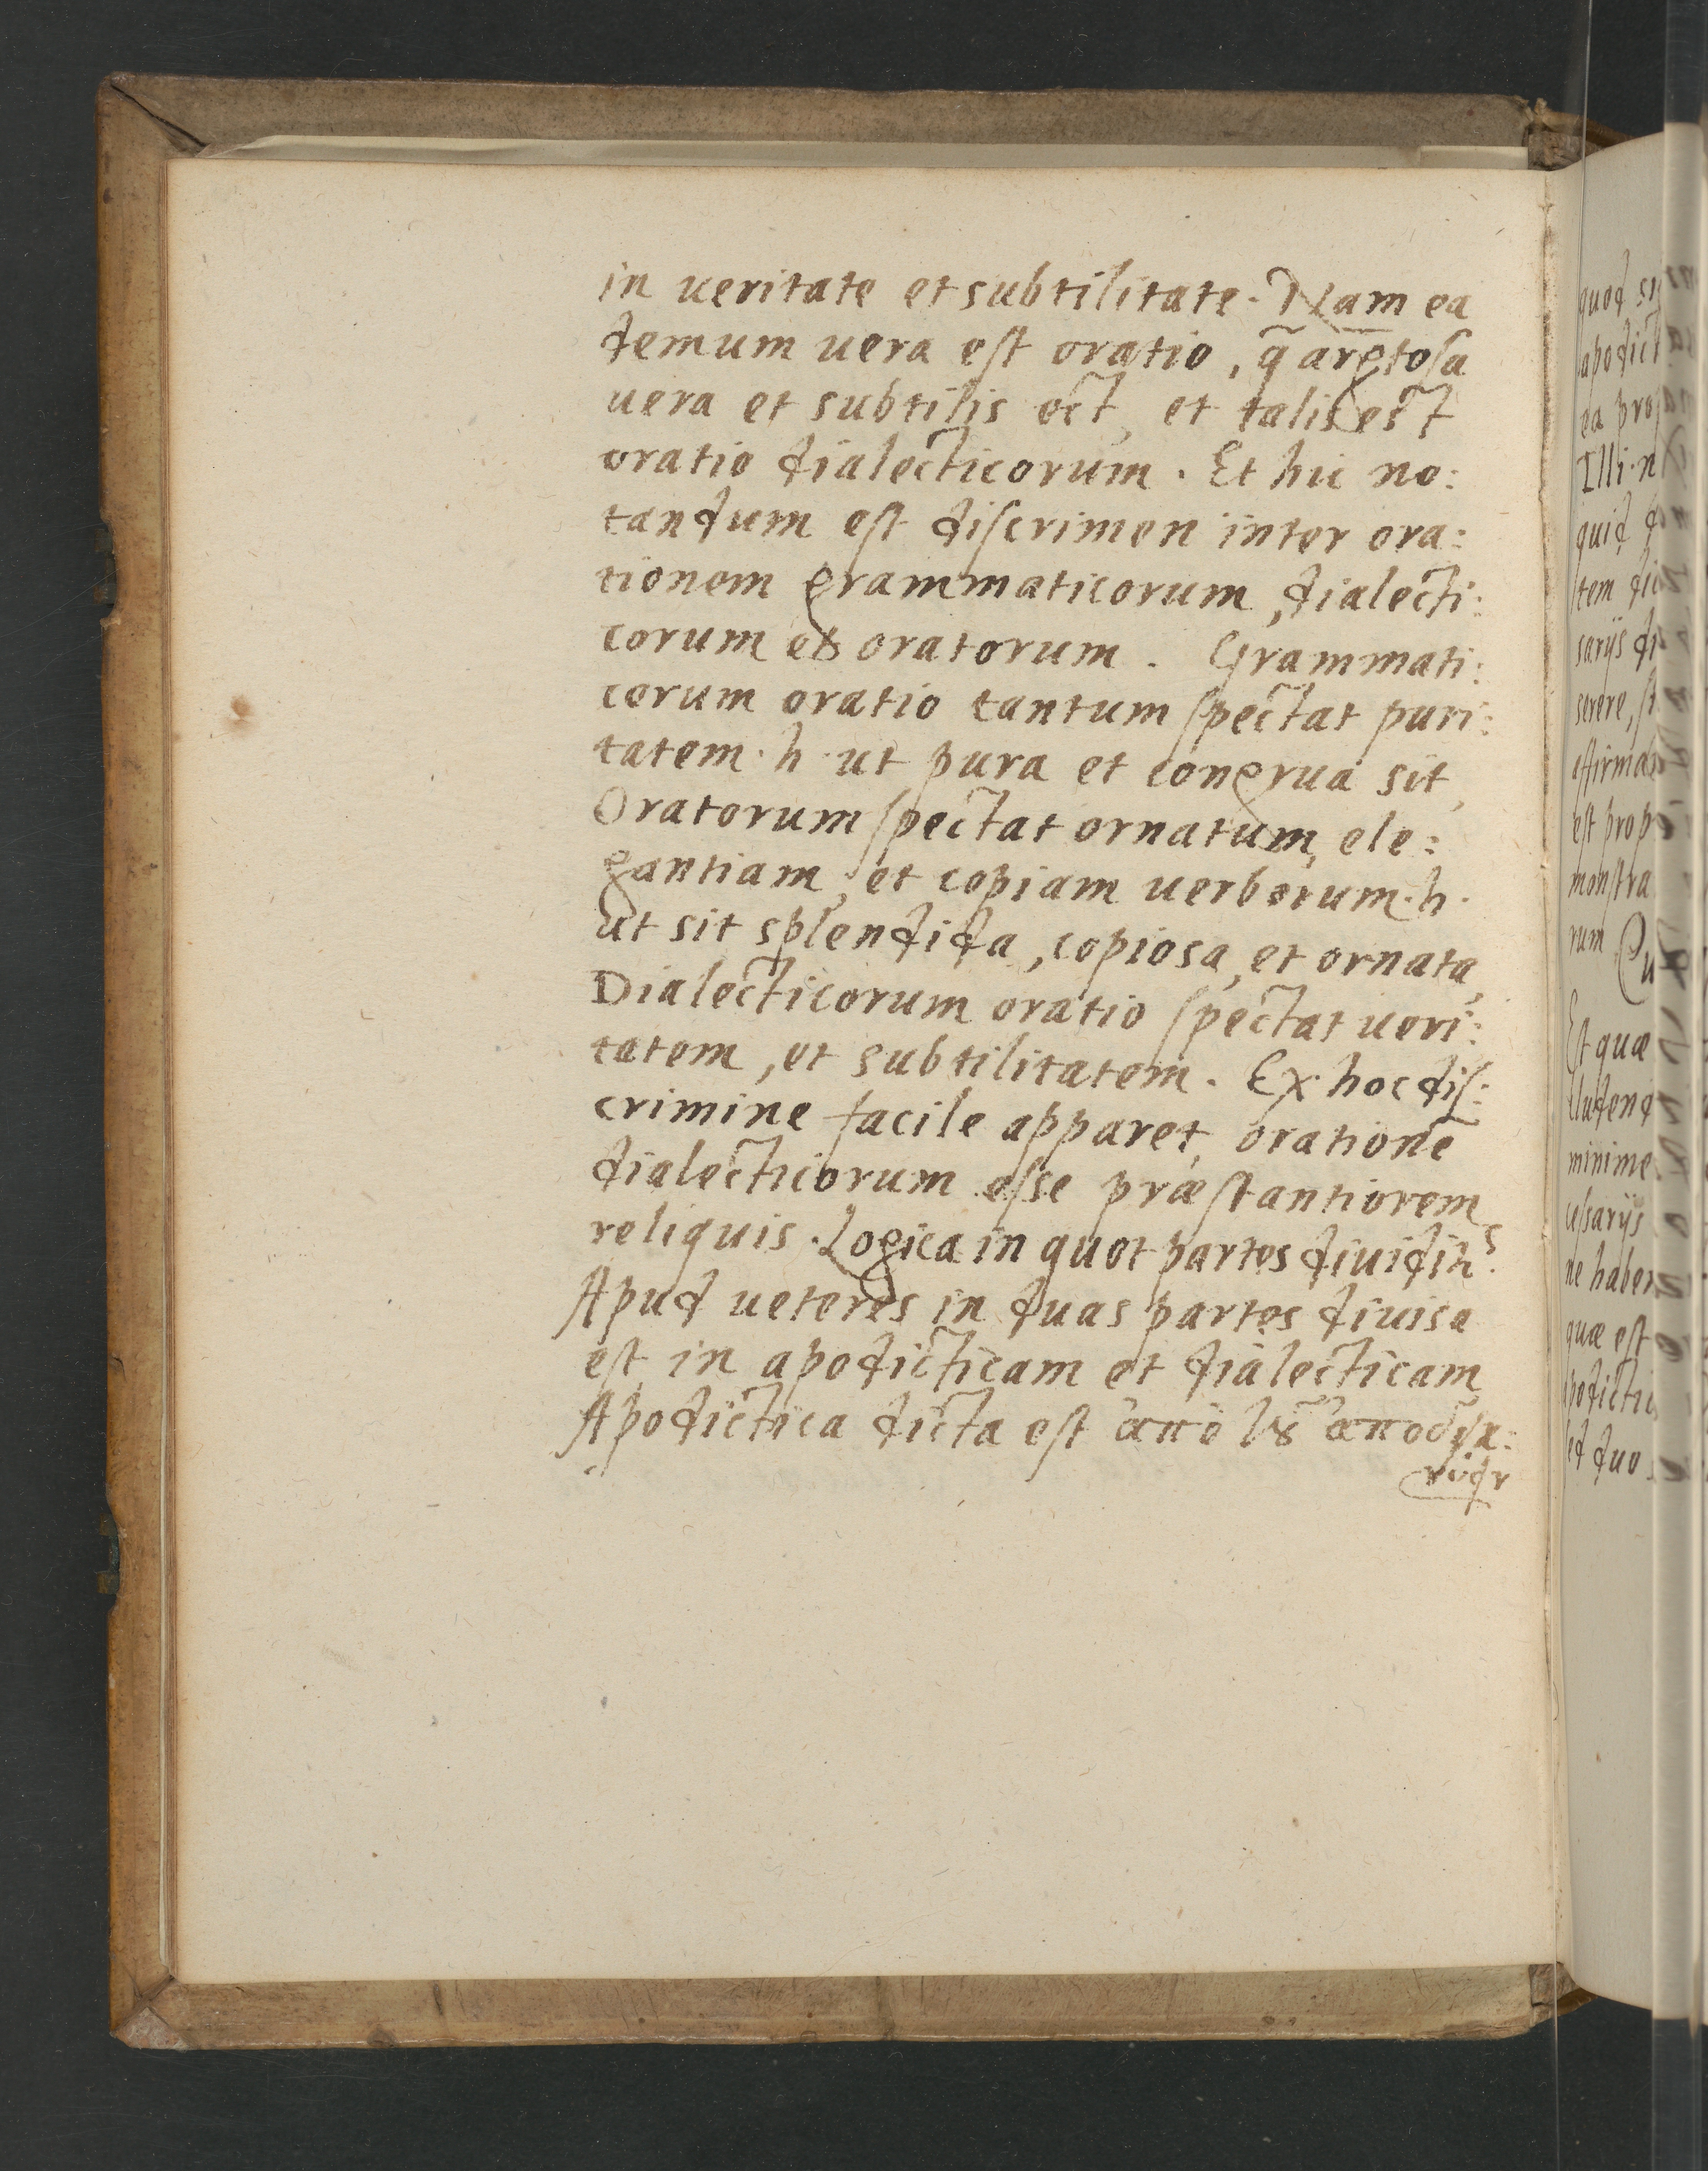 in ueritate et subtilitate. Nam ea
demum uera est oratio, q̃ argtosa
uera et subtilis est, et talis est
oratio dialecticorum. Et hic no:
tandum est discrimen inter ora:
tionem grammaticorum, dialecti:
corum et oratorum. Grammati:
corum oratio tantum spectat puri:
tatem. h. ut pura et congrua sit,
Oratorum spectat ornatum, ele:
gantiam, et copiam uerborum. h.
ut sit splendida, copiosa, et ornata,
Dialecticorum oratio spectat ueri:
tatem, et subtilitatem. Ex hoc dis:
crimine facile apparet, orationē
dialecticorum esse præstantiorem
reliquis. Logica in quot partes
Apud ueteres in duas partes diuisa
est, in apodicticam et dialecticam
Apodictica dicta est ἀπὸ
quod
apodict
ea prop
Illi
quid
tem
sarijs
serere,
est prop
monstra
rum
Est quæ
minime
cessarijs
ne haber
quæ est
et duo